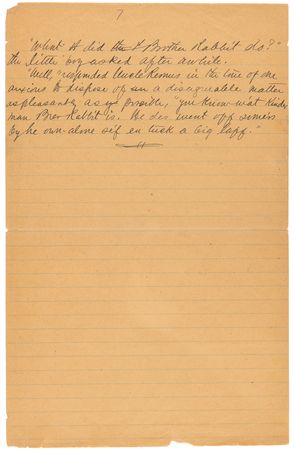 7
"What did Brother Rabbit do?"
the little boy asked after awhile.
"Well," responded Uncle Remus in the tone of one
anxious to dispose of a disagreeable matter
as pleasantly as possible, "you know what kinder
man Brer Rabbit is. He des went off somers
by he own-alone sef en tuck a big laff."